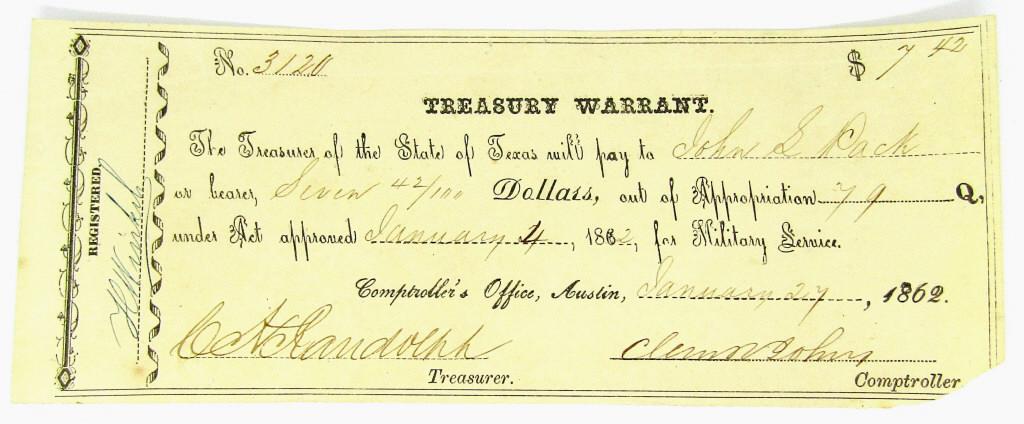 No. 3120 $ 7 42
TREASURY WARRANT.
The Treasurer of the State of Texas will pay to John S Pack
or bearer, Seven 42/100 Dollars, out of Appropriation 79 Q,
under Act approved January 4, 1862, for Military Service.
Comptroller's Office, Austin, January 27, 1862.
C H Randolph Clem R Johns
Treasurer. Comptroller
REGISTERED.